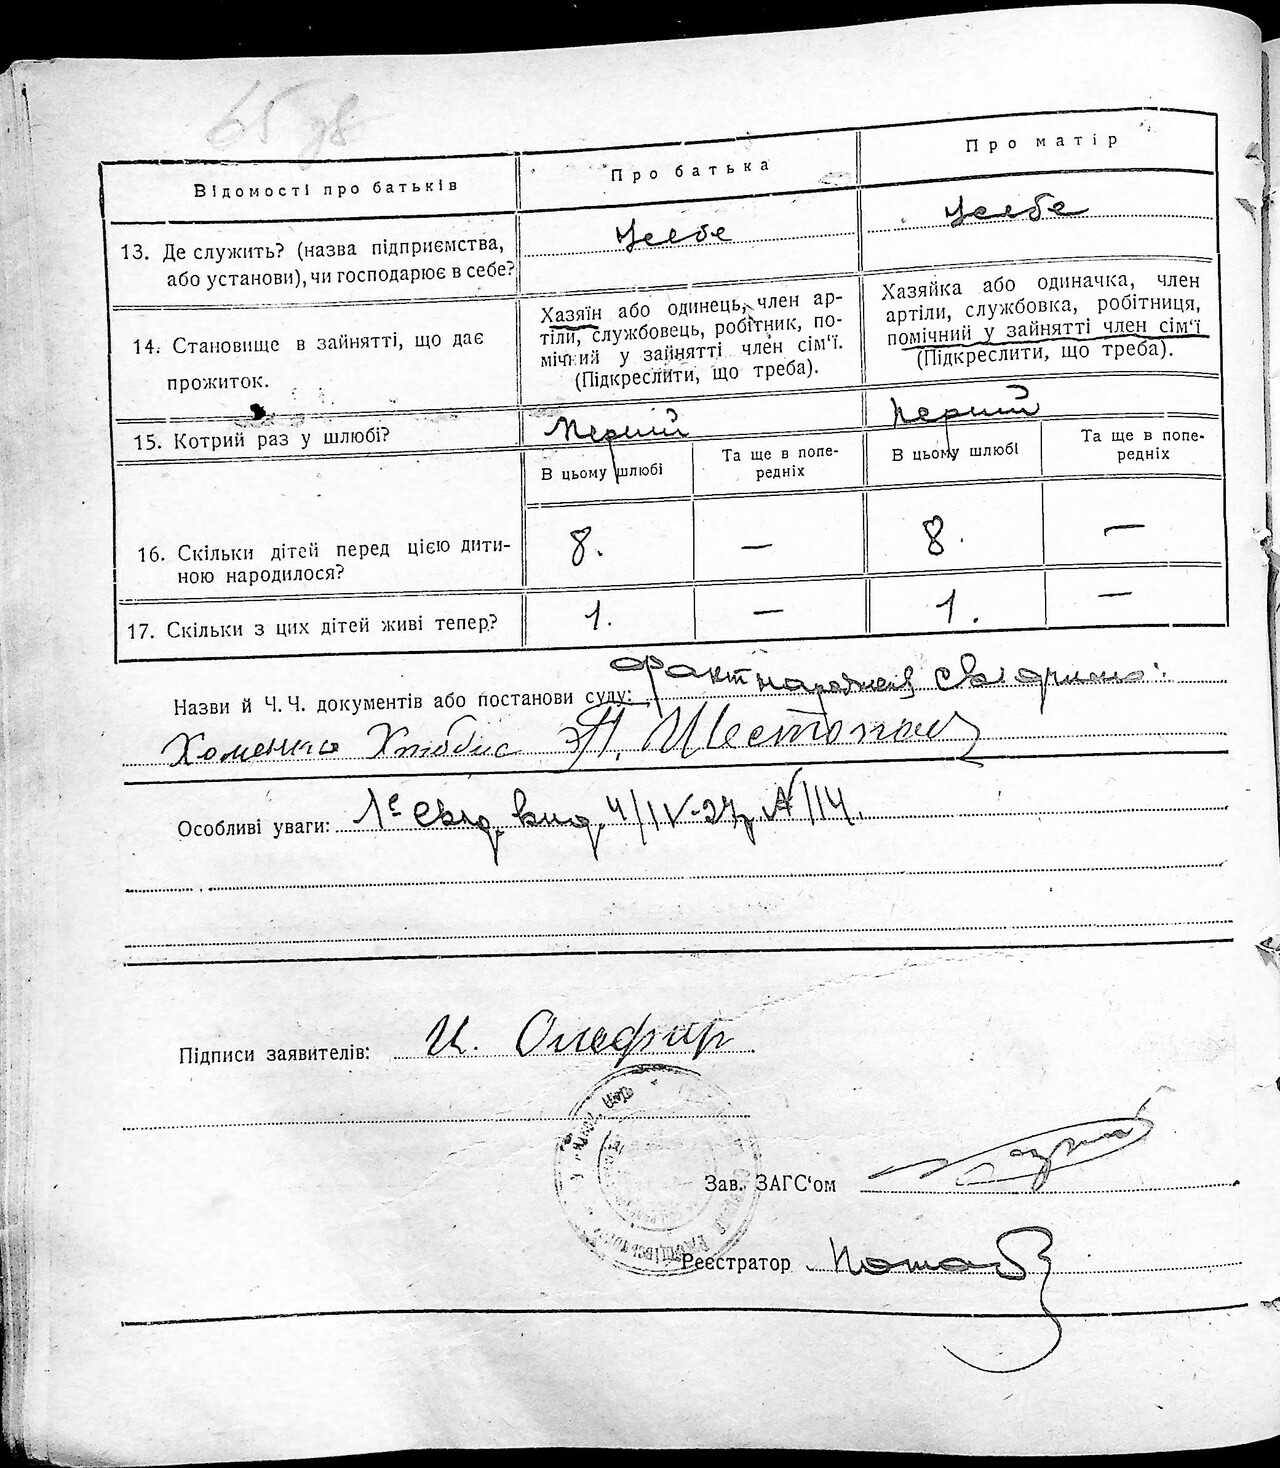 65 зв
Відомості про батьків
Про батька
Про матір
13. Де служить? (назва підприємства,
або установи), чи господарює в себе?
У себе
У себе
14. Становище в зайнятті, що дає
прожиток.
Хазяїн або одинець, член ар-
тіли, службовець, робітник, по-
мічний у зайнятті член сім'ї.
(Підкреслити, що треба).
Хазяйка або одиначка, член
артіли, службовка, робітниця,
помічний у зайнятті член сім'ї
(Підкреслити, що треба).
15. Котрий раз у шлюбі?
Перший
Перший
В цьому шлюбі
Та ще в попе-
редніх
В цьому шлюбі
Та ще в попе-
редніх
16. Скільки дітей перед цією дити-
ною народилося?
8.
—
8.
—
17. Скільки з цих дітей живі тепер?
1.
—
1.
—
Назви й Ч.Ч. документів або постанови суду: Факт народження
Хоменко П. Шестопал
Особливі уваги: свід. вид. 4/IV-27р. № 114.
Підписи заявителів: И. Олефир
Зав. ЗАГС'ом
Реєстратор